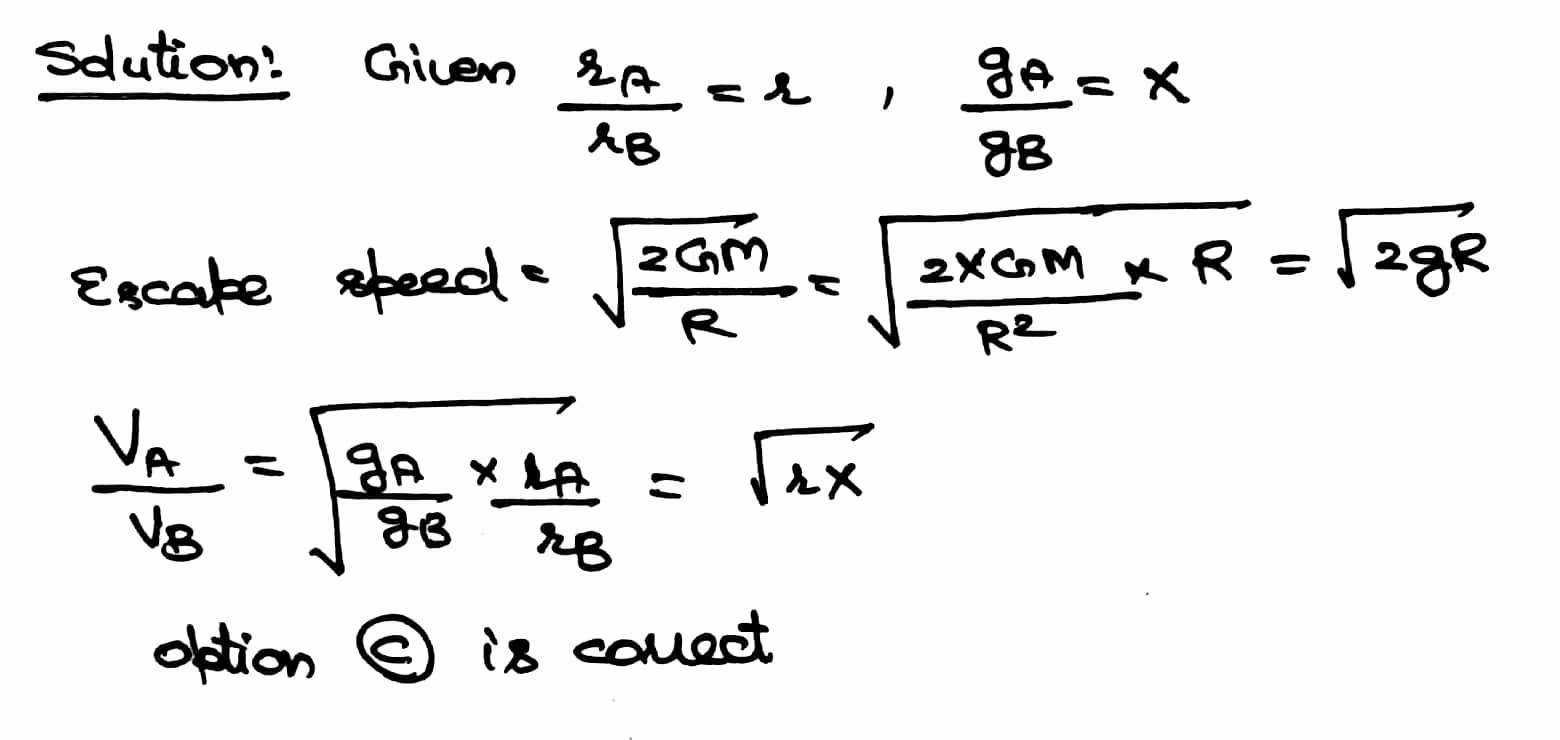 Solution: Given r_A/r_B = r , g_A/g_B = x
Escape speed = √(2GM/R) = √(2×GM/R² × R) = √(2gR)
V_A/V_B = √(g_A/g_B × r_A/r_B) = √(rx)
option ⓒ is correct